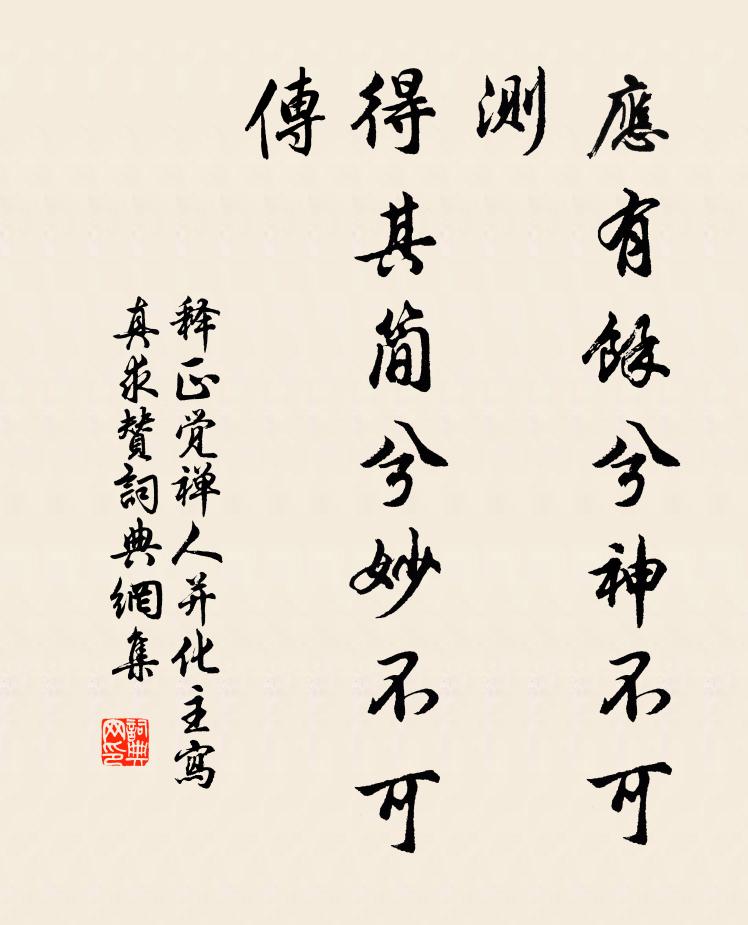 應有餘兮神不可
測
得其简兮妙不可
傳
释正觉禅人并化主寫
真求赞詞典網集
詞典网印